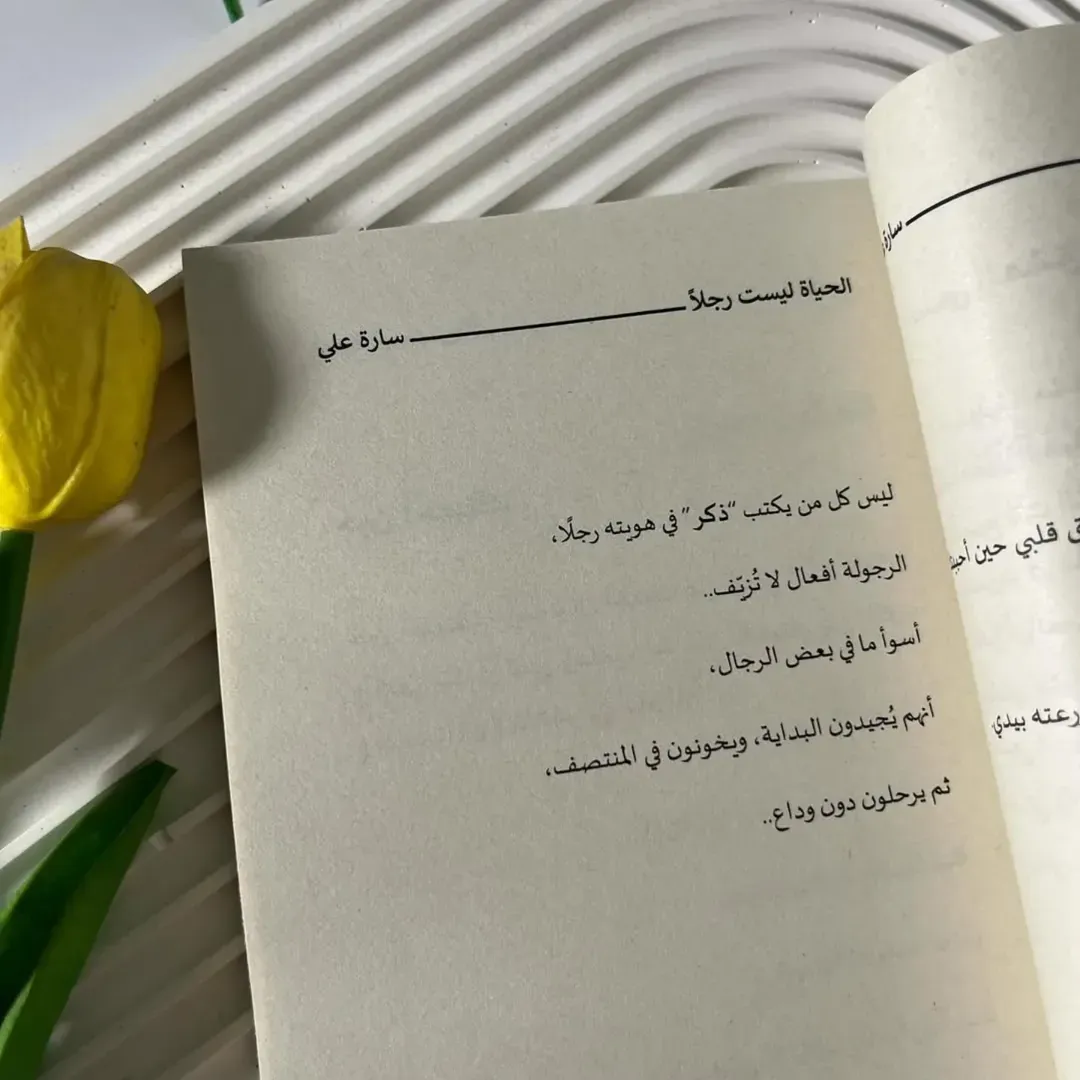 الحياة ليست رجلاً ــــــــــ سارة علي
ليس كل من يكتب "ذكر" في هويته رجلًا،
الرجولة أفعال لا تُزيّف..
أسوأ ما في بعض الرجال،
أنهم يُجيدون البداية، ويخونون في المنتصف،
ثم يرحلون دون وداع..
سارة
قلبي حين
بيدي